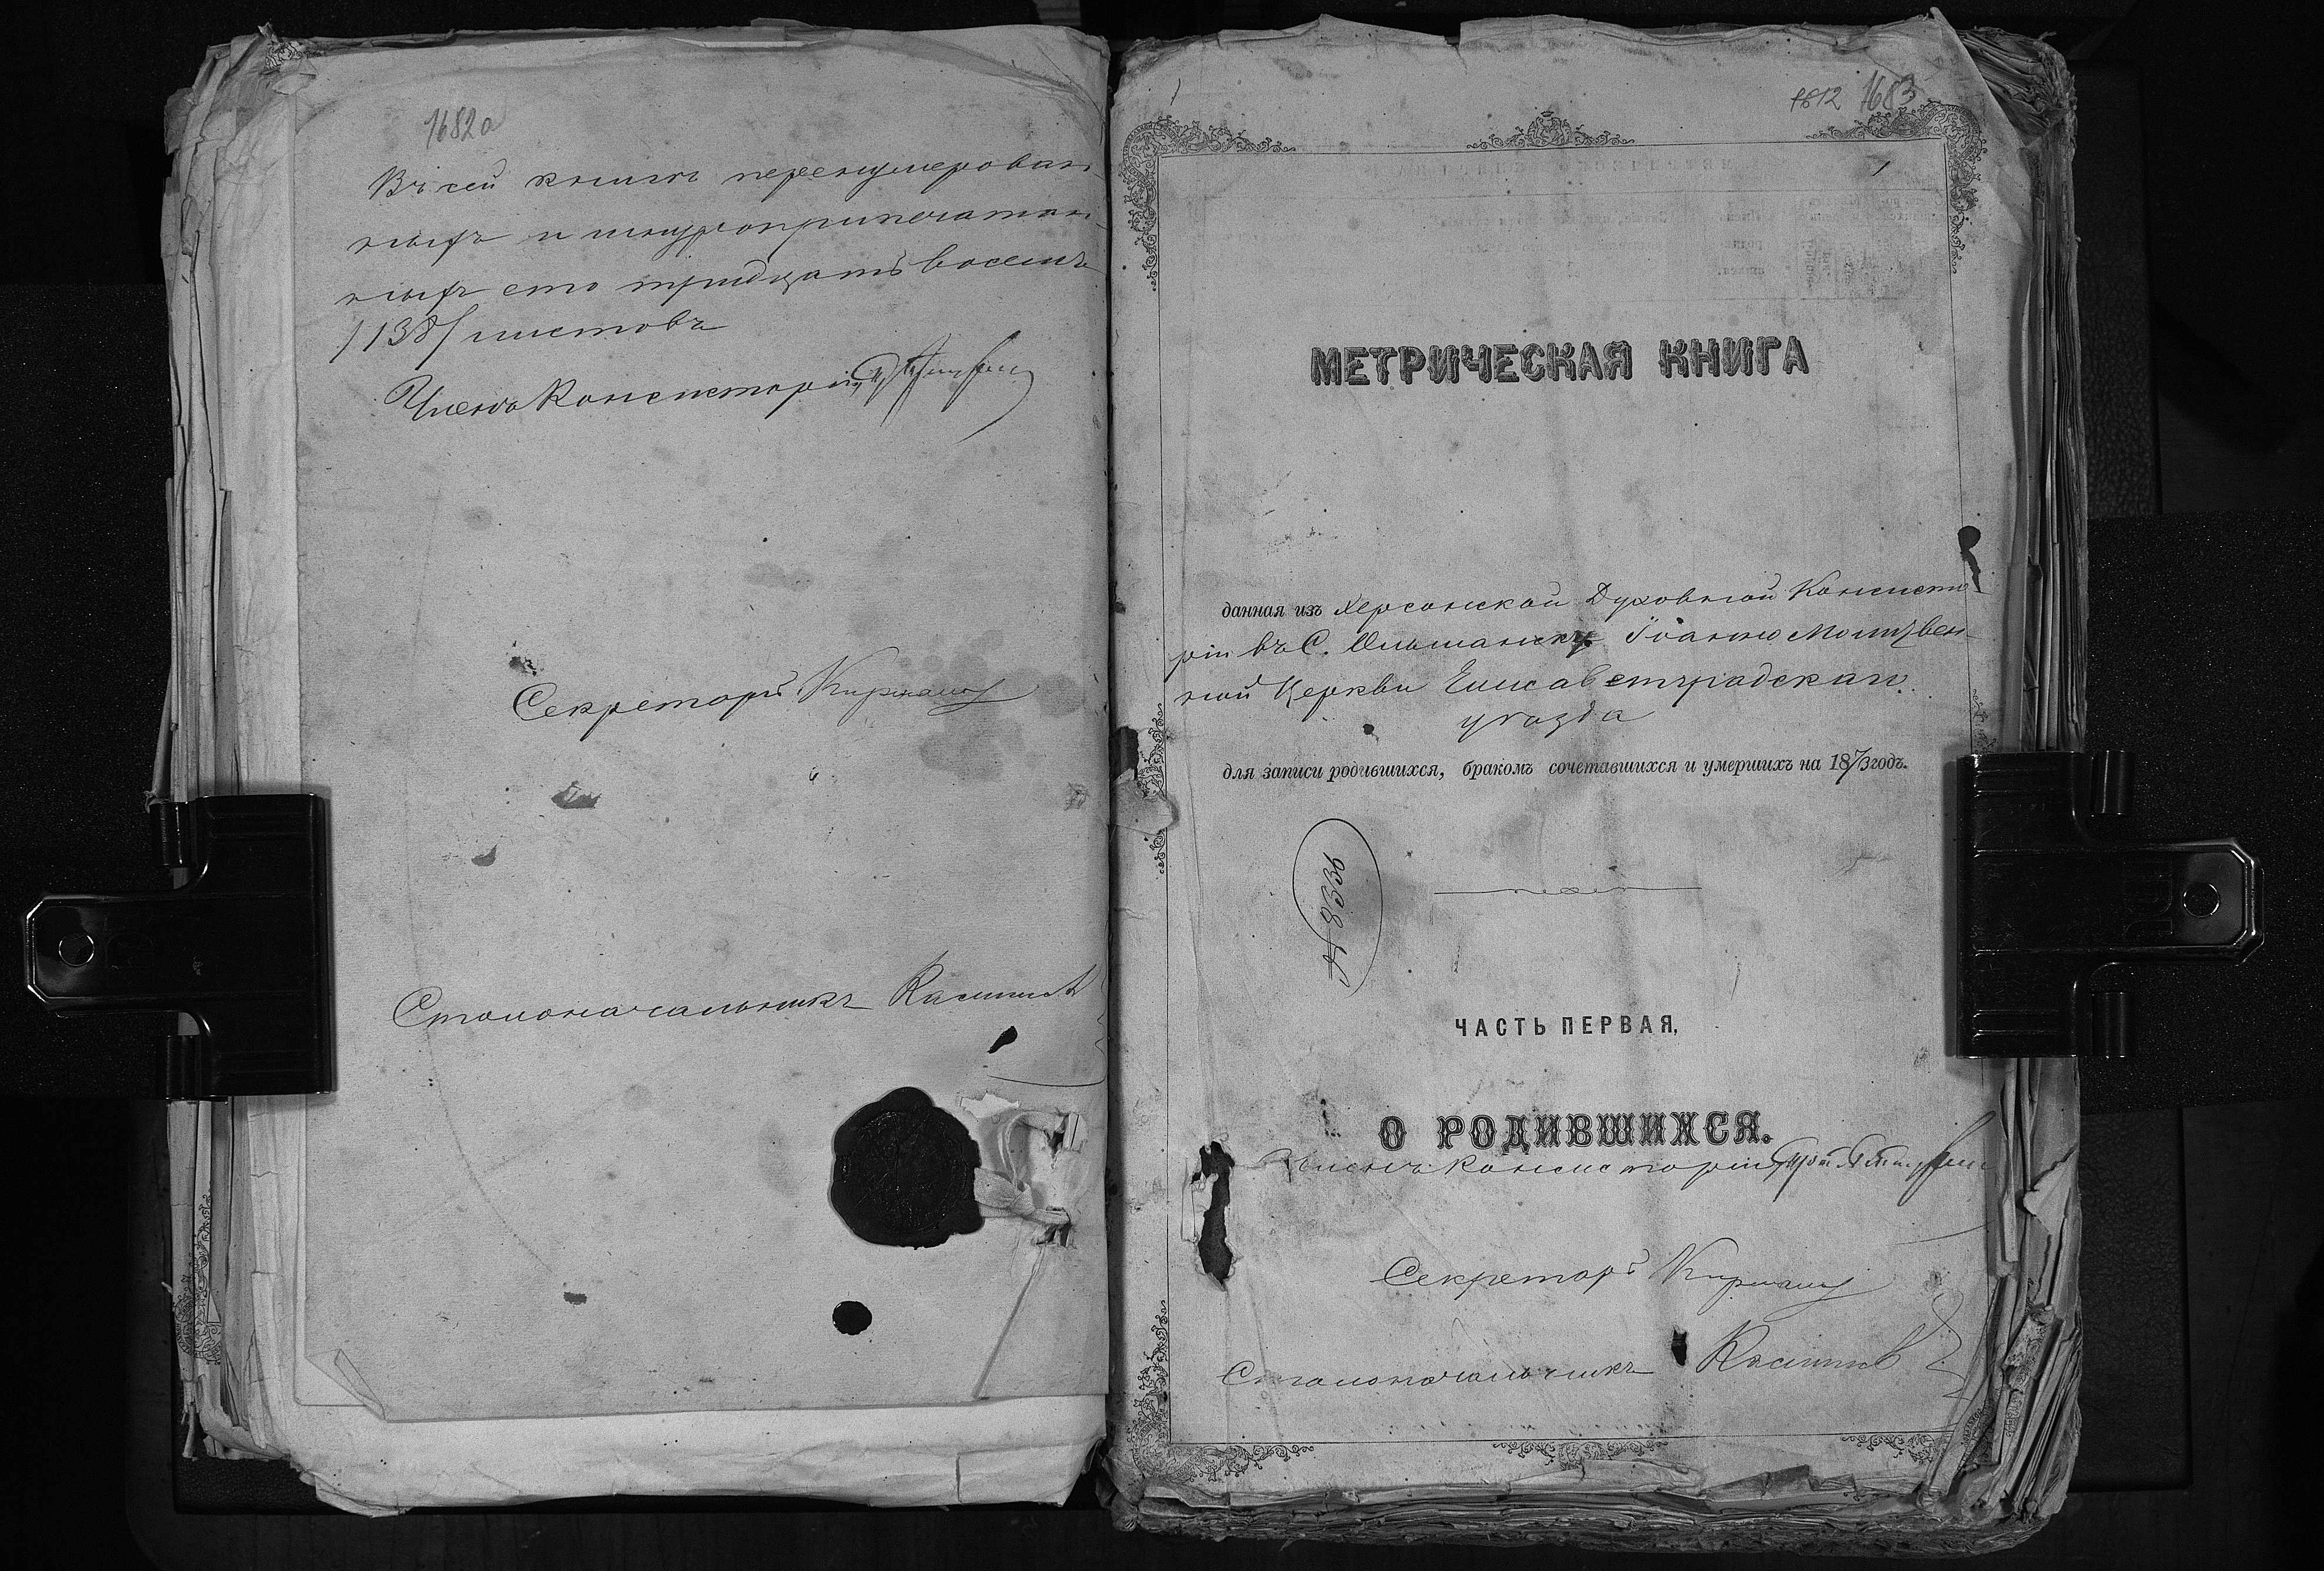 1682а
Въ сей книгѣ перенумерован-
ныхъ и шнуроприпечатан-
ныхъ сто тридцать восемь
/138/ листовъ
Членъ Консисторіи,
Секретарь
Столоначальникъ
1812 1683
1
МЕТРИЧЕСКАЯ КНИГА
данная изъ Херсонской Духовной Консисто-
ріи въ С. Ольшанку Іоанно Богословен-
ной Церкви Елисаветградскаго
уѣзда
для записи родившихся, бракомъ сочетавшихся и умершихъ на 1873 годъ.
№ 8336
ЧАСТЬ ПЕРВАЯ,
О РОДИВШИХСЯ.
Членъ Консисторіи,
Секретарь
Столоначальникъ